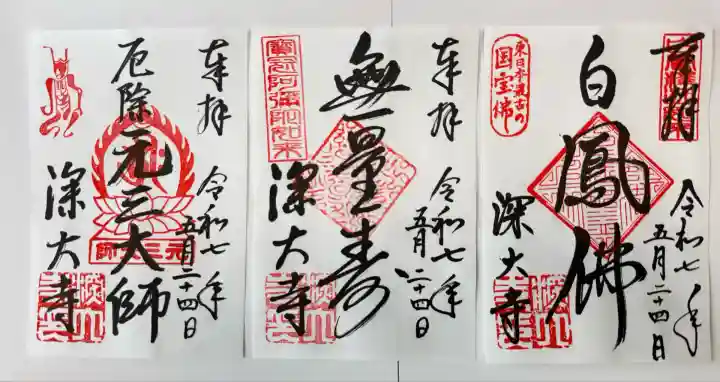 奉拝
令和七年
五月二十四日
厄除元三大師
元三大師
深大寺
奉拝
令和七年
五月二十四日
無量寿
寶冠阿弥陀如来
深大寺
奉拝
令和七年
五月二十四日
白鳳佛
東日本最古の
国宝佛
深大寺